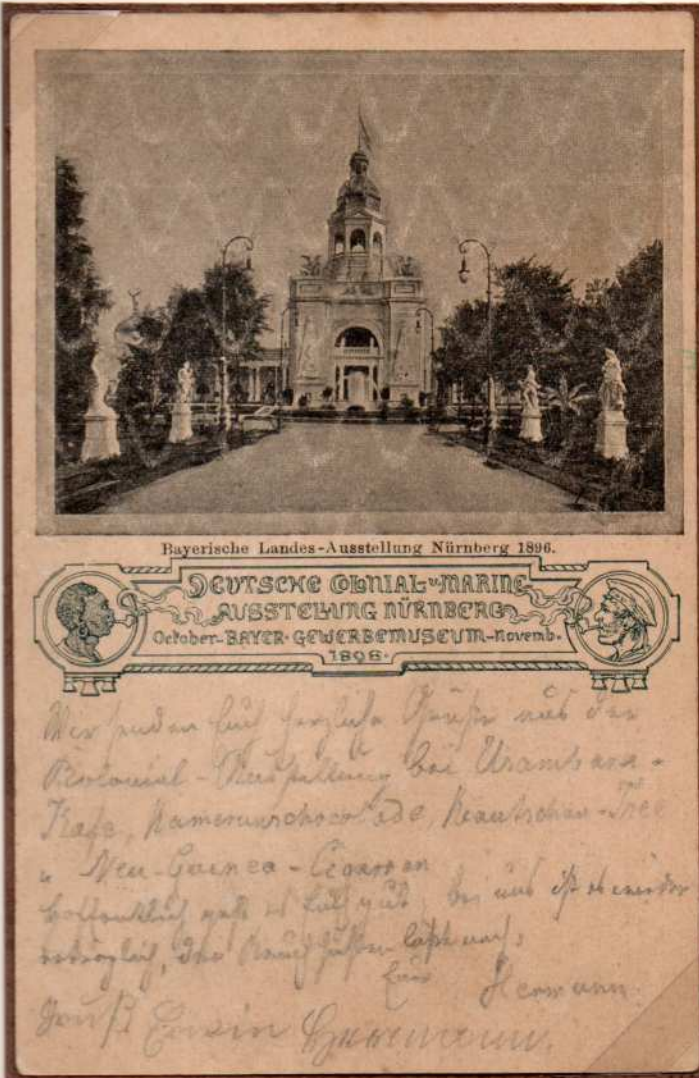 Bayerische Landes-Ausstellung Nürnberg 1896.
DEUTSCHE COLONIAL- u. MARINE
AUSSTELLUNG NÜRNBERG
October-BAYER. GEWERBEMUSEUM-Novemb.
1898.
Wir senden Euch herzliche Grüße aus der
Kolonial-Ausstellung bei Usambara-
Kafe, Kamerunschocolade, Kautschau-Thee
u Neu-Guinea-Cigarren
hoffentlich geht es Euch gut, bei uns ist es wieder
läßt nach.
Euer Hermann
Gruß Erwin